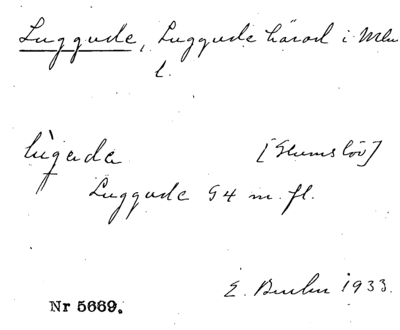 Luggude, Luggude härad i Mlm
l.
lùgada [Glumslöv]
Luggude G4 m. fl.
E. 1933.
Nr 5669.